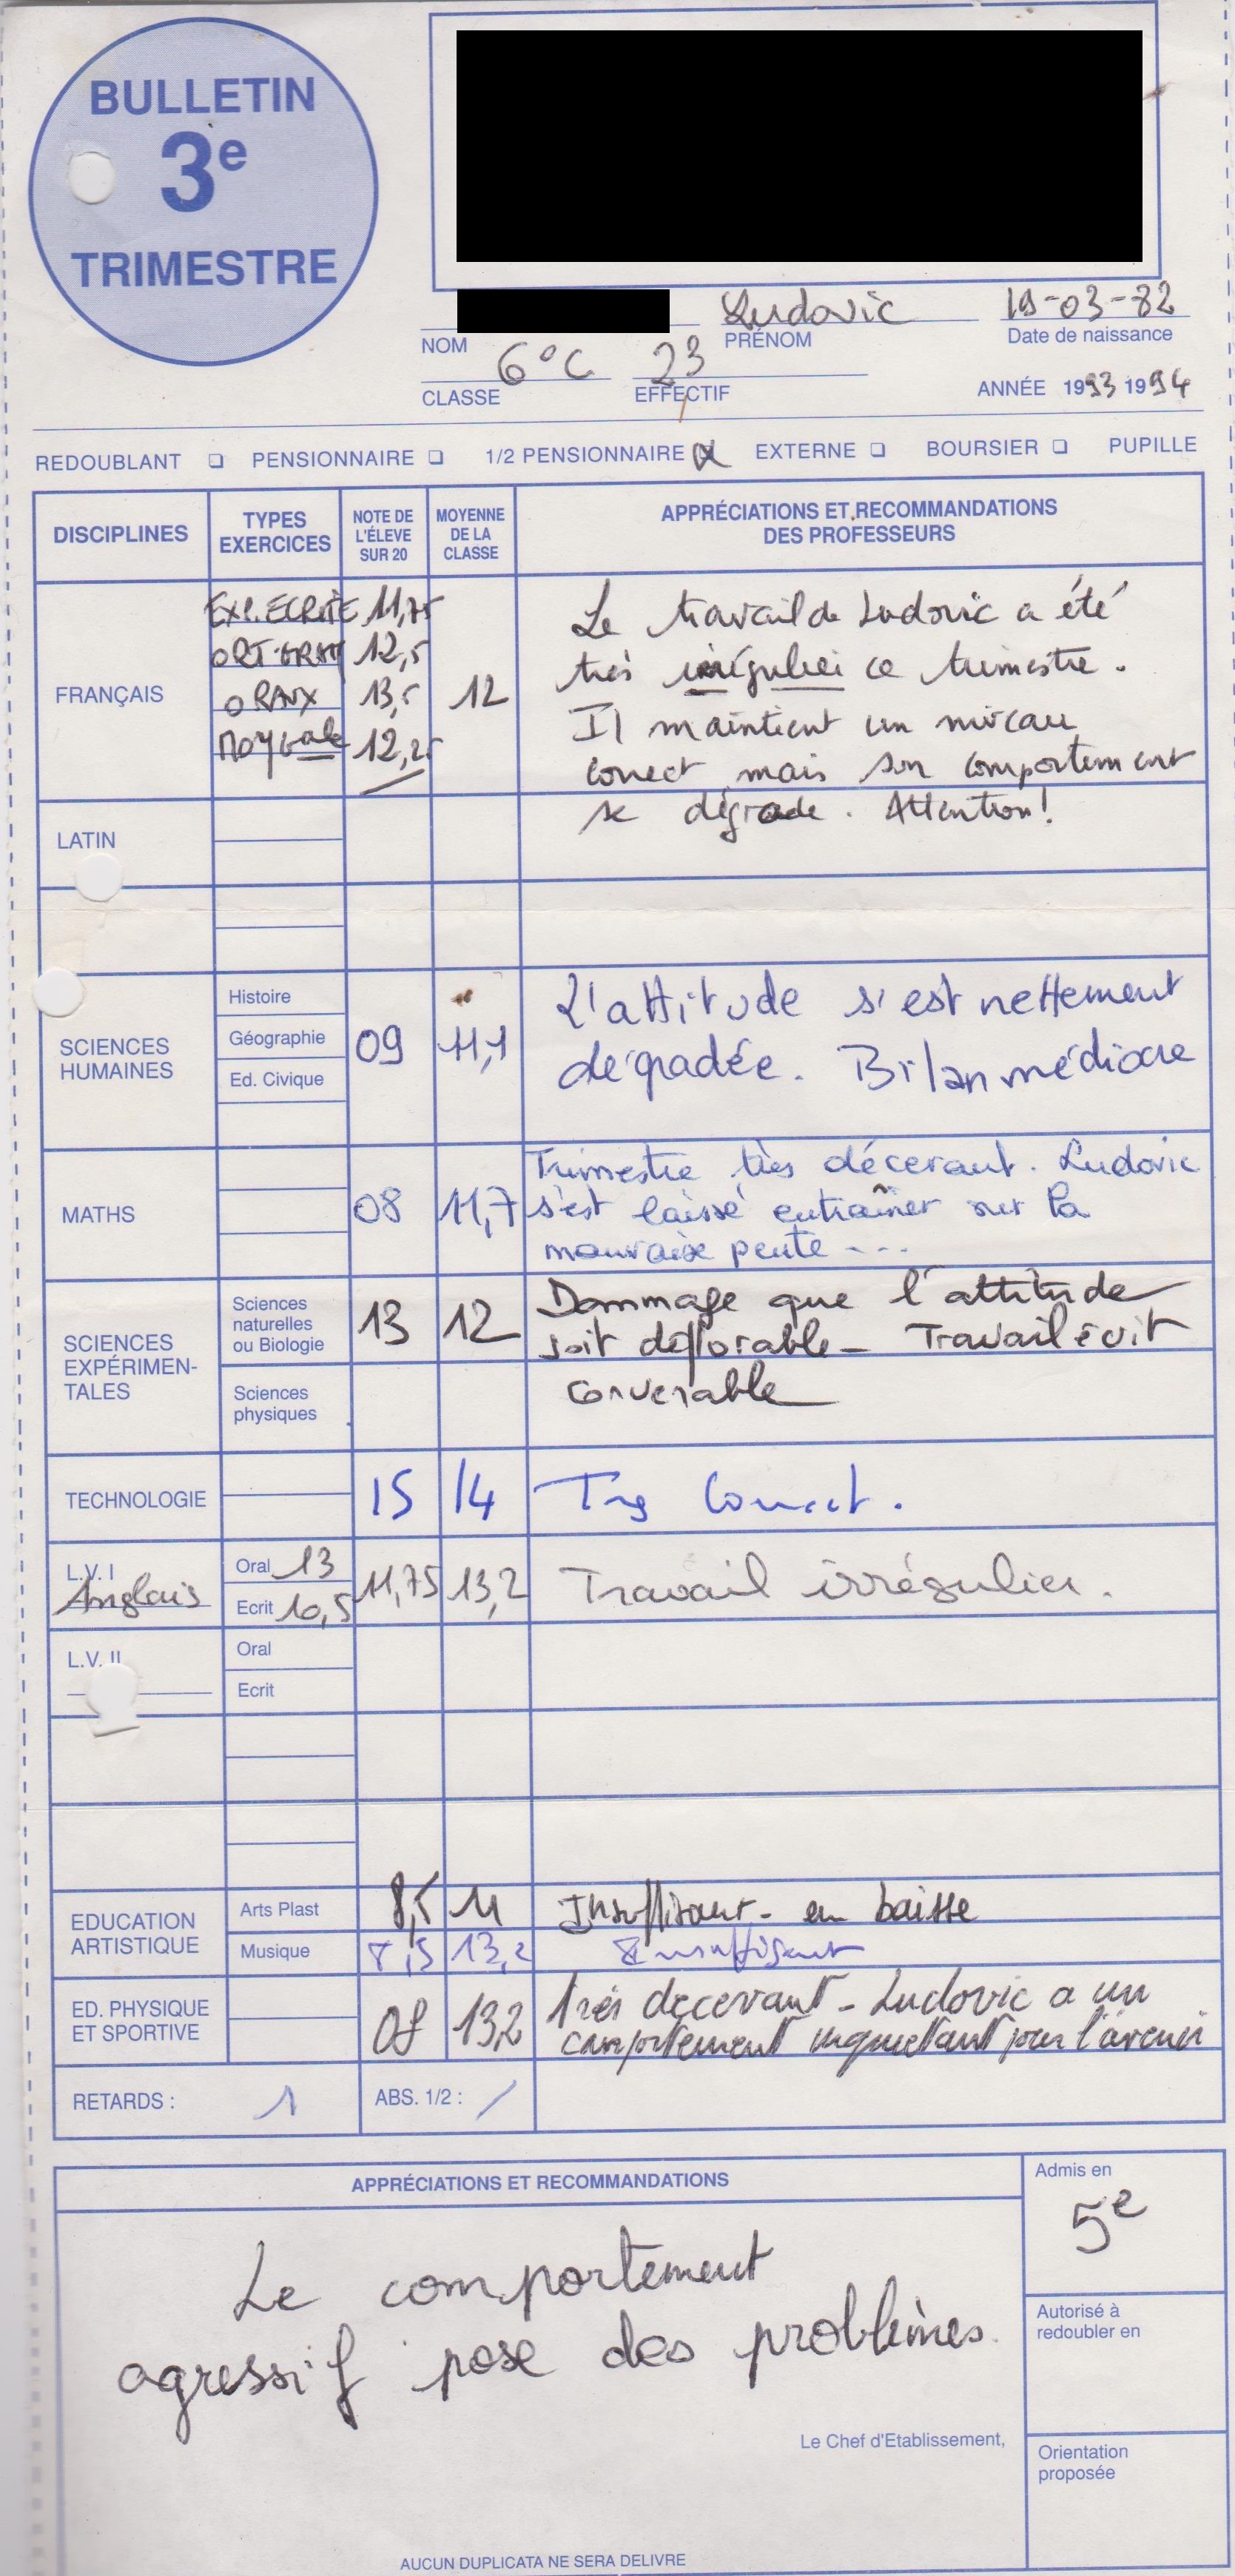 BULLETIN
3e
TRIMESTRE
Ludovic 19-03-82
NOM PRÉNOM Date de naissance
6°C 23
CLASSE EFFECTIF ANNÉE 1993 1994
REDOUBLANT PENSIONNAIRE 1/2 PENSIONNAIRE X EXTERNE BOURSIER PUPILLE
DISCIPLINES
TYPES
EXERCICES
NOTE DE
L'ÉLEVE
SUR 20
MOYENNE
DE LA
CLASSE
APPRÉCIATIONS ET RECOMMANDATIONS
DES PROFESSEURS
FRANÇAIS
EXP. ECRITE 11,75
ORT. GRAM 12,5
ORAUX 13,5
Moy Gale 12,25
12
Le travail de Ludovic a été
très irrégulier ce trimestre.
Il maintient un niveau
correct mais son comportement
se dégrade. Attention!
LATIN
SCIENCES
HUMAINES
Histoire
Géographie
Ed. Civique
09
11,1
L'attitude s'est nettement
dégradée. Bilan médiocre
MATHS
08
11,7
Trimestre très décevant. Ludovic
s'est laissé entraîner sur la
mauvaise pente ...
SCIENCES
EXPÉRIMEN-
TALES
Sciences
naturelles
ou Biologie
13
12
Dommage que l'attitude
soit déplorable - Travail écrit
convenable
Sciences
physiques
TECHNOLOGIE
15
14
Très Correct.
L.V. I
Anglais
Oral 13
Ecrit 10,5
11,75
13,2
Travail irrégulier.
L.V. II
Oral
Ecrit
EDUCATION
ARTISTIQUE
Arts Plast
8,5
11
Insuffisant - en baisse
Musique
8,5
13,2
Insuffisant
ED. PHYSIQUE
ET SPORTIVE
08
13,2
Très decevant - Ludovic a un
comportement inquietant pour l'avenir
RETARDS : 1
ABS. 1/2 : /
APPRÉCIATIONS ET RECOMMANDATIONS
Le comportement
agressif pose des problèmes.
Le Chef d'Etablissement,
Admis en
5e
Autorisé à
redoubler en
Orientation
proposée
AUCUN DUPLICATA NE SERA DELIVRE